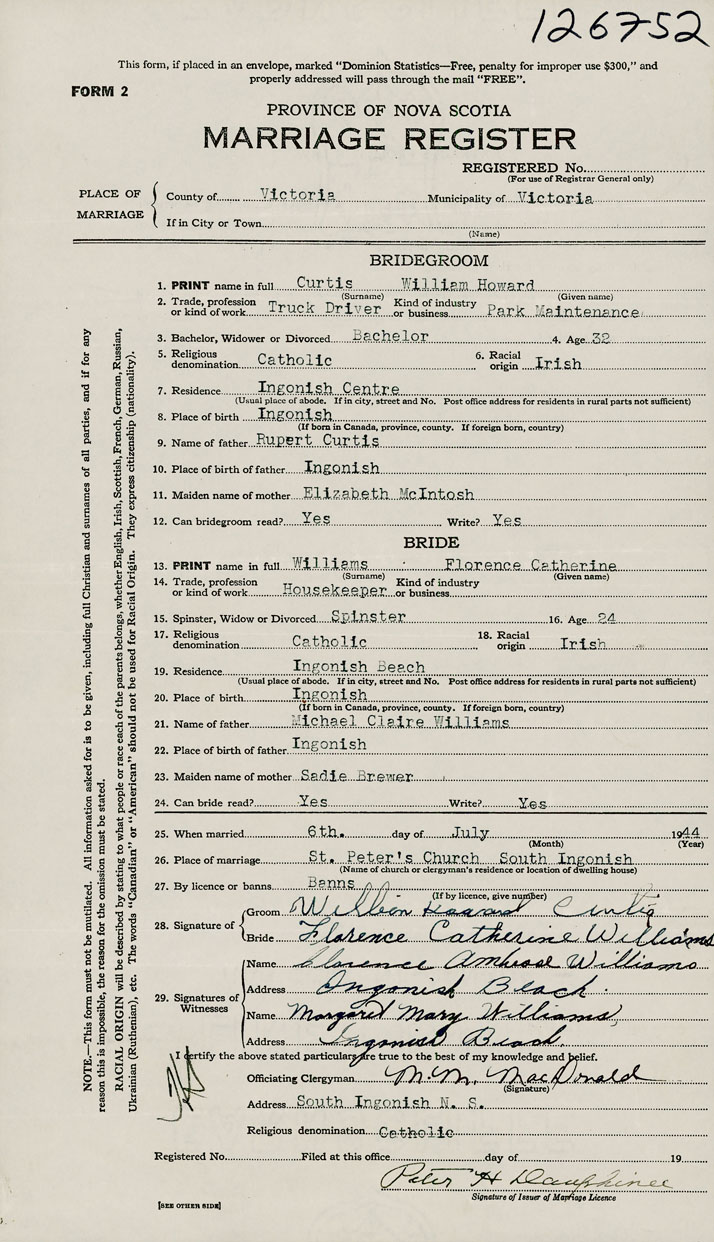 126752
This form, if placed in an envelope, marked "Dominion Statistics—Free, penalty for improper use $300," and
properly addressed will pass through the mail "FREE".
FORM 2
PROVINCE OF NOVA SCOTIA
MARRIAGE REGISTER
REGISTERED No.
(For use of Registrar General only)
PLACE OF MARRIAGE
County of Victoria Municipality of Victoria
If in City or Town
(Name)
BRIDEGROOM
1. PRINT name in full Curtis William Howard
(Surname) (Given name)
2. Trade, profession or kind of work Truck Driver Kind of industry or business Park Maintenance
3. Bachelor, Widower or Divorced Bachelor 4. Age 32
5. Religious denomination Catholic 6. Racial origin Irish
7. Residence Ingonish Centre
(Usual place of abode. If in city, street and No. Post office address for residents in rural parts not sufficient)
8. Place of birth Ingonish
(If born in Canada, province, county. If foreign born, country)
9. Name of father Rupert Curtis
10. Place of birth of father Ingonish
11. Maiden name of mother Elizabeth McIntosh
12. Can bridegroom read? Yes Write? Yes
BRIDE
13. PRINT name in full Williams Florence Catherine
(Surname) (Given name)
14. Trade, profession or kind of work Housekeeper Kind of industry or business
15. Spinster, Widow or Divorced Spinster 16. Age 24
17. Religious denomination Catholic 18. Racial origin Irish
19. Residence Ingonish Beach
(Usual place of abode. If in city, street and No. Post office address for residents in rural parts not sufficient)
20. Place of birth Ingonish
(If born in Canada, province, county. If foreign born, country)
21. Name of father Michael Claire Williams
22. Place of birth of father Ingonish
23. Maiden name of mother Sadie Brewer
24. Can bride read? Yes Write? Yes
25. When married 6th. day of July 1944
(Month) (Year)
26. Place of marriage St. Peter's Church South Ingonish
(Name of church or clergyman's residence or location of dwelling house)
27. By licence or banns Banns
(If by licence, give number)
28. Signature of
Groom William Howard Curtis
Bride Florence Catherine Williams
29. Signatures of Witnesses
Name Clarence Ambrose Williams
Address Ingonish Beach.
Name Margaret Mary Williams
Address Ingonish Beach.
I certify the above stated particulars are true to the best of my knowledge and belief.
Officiating Clergyman M.M. MacDonald
(Signature)
Address South Ingonish N. S.
Religious denomination Catholic
Registered No. Filed at this office day of 19
Peter H Dauphinee
Signature of Issuer of Marriage Licence
[SEE OTHER SIDE]
NOTE.—This form must not be mutilated. All information asked for is to be given, including full Christian and surnames of all parties, and if for any
reason this is impossible, the reason for the omission must be stated.
RACIAL ORIGIN will be described by stating to what people or race each of the parents belongs, whether English, Irish, Scottish, French, German, Russian,
Ukrainian (Ruthenian), etc. The words "Canadian" or "American" should not be used for Racial Origin. They express citizenship (nationality).